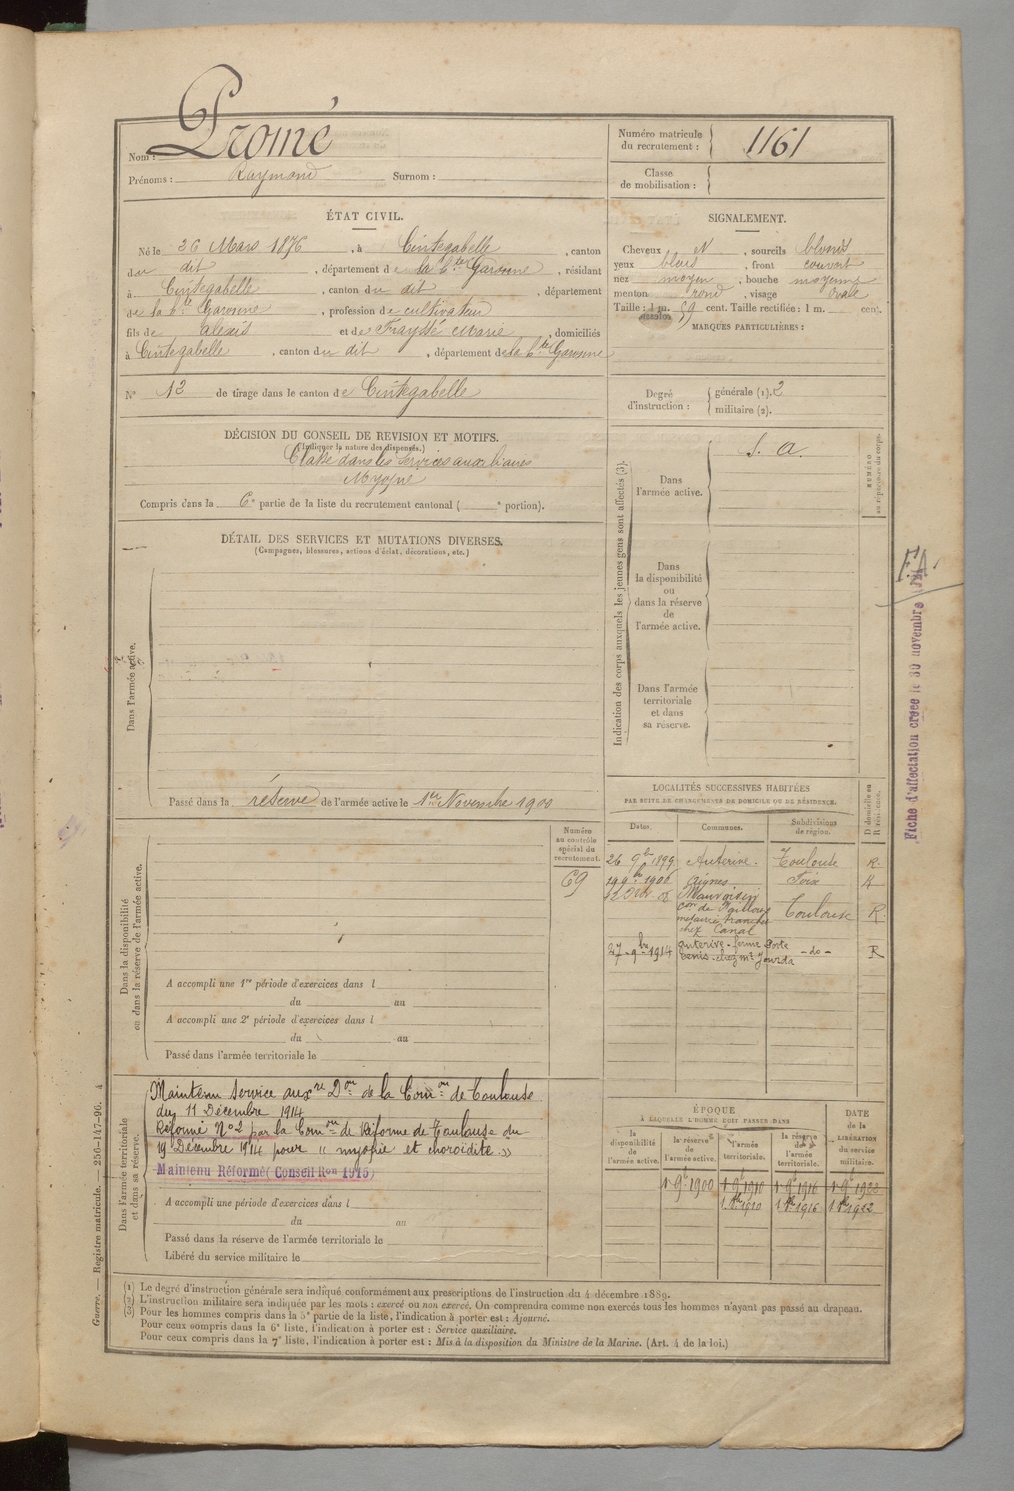 Nom : Promé
Prénoms : Raymond Surnom :
Numéro matricule du recrutement : 1161
Classe de mobilisation :
ÉTAT CIVIL.
Né le 26 Mars 1876, à Cintegabelle, canton
du dit, département de la hte Garonne, résidant
à Cintegabelle, canton du dit, département
de la hte Garonne, profession de cultivateur
fils de Alexis et de Frayssé Marie, domiciliés
à Cintegabelle, canton du dit, département de la hte Garonne
SIGNALEMENT.
Cheveux N, sourcils blonds
yeux bleus, front couvert
nez moyen, bouche moyenne
menton rond, visage ovale
Taille : 1 m. 59 cent. Taille rectifiée : 1 m. cent.
MARQUES PARTICULIÈRES :
N° 12 de tirage dans le canton de Cintegabelle
Degré d'instruction : générale (1). 2
militaire (2).
DÉCISION DU CONSEIL DE REVISION ET MOTIFS.
(Indiquer la nature des dispenses.)
Classé dans les services auxiliaires
Myopie
Compris dans la 6e partie de la liste du recrutement cantonal ( e portion).
DÉTAIL DES SERVICES ET MUTATIONS DIVERSES.
(Campagnes, blessures, actions d'éclat, décorations, etc.)
Dans l'armée active.
Passé dans la réserve de l'armée active le 1er Novembre 1900
Indication des corps auxquels les jeunes gens sont affectés (3).
Dans l'armée active.
S. A.
NUMÉRO au répertoire du corps.
Dans la disponibilité ou dans la réserve de l'armée active.
Dans l'armée territoriale et dans sa réserve.
F.A.
Fiche d'affectation créée le 30 novembre
Dans la disponibilité ou dans la réserve de l'armée active.
Numéro au contrôle spécial du recrutement.
69
A accompli une 1re période d'exercices dans l
du au
A accompli une 2e période d'exercices dans l
du au
Passé dans l'armée territoriale le
LOCALITÉS SUCCESSIVES HABITÉES
PAR SUITE DE CHANGEMENTS DE DOMICILE OU DE RÉSIDENCE.
Dates. Communes. Subdivisions de région. D domicile ou R résidence.
26 9bre 1899 Auterive. Toulouse R
19 9bre 1906 Aignes Foix R
Mauvoisin
con de Nailloux
chez Canal Toulouse R
27 9bre 1914 Auterive - ferme Porte - do - R
Dans l'armée territoriale et dans sa réserve.
Maintenu Service auxre Don de la Comon de Toulouse
du 11 Décembre 1914
Réformé N°2 par la Comon de Réforme de Toulouse du
19 Décembre 1914 pour " myopie et choroïdite "
Maintenu Réformé (Conseil Ron 1915)
A accompli une période d'exercices dans l
du au
Passé dans la réserve de l'armée territoriale le
Libéré du service militaire le
ÉPOQUE
À LAQUELLE L'HOMME DOIT PASSER DANS
la disponibilité de l'armée active.
la réserve de l'armée active.
l'armée territoriale.
la réserve de l'armée territoriale.
DATE de la LIBÉRATION du service militaire.
1 9bre 1900 1 9bre 1910 1 9bre 1916 1 9bre 1922
1 8bre 1910 1 8bre 1916 1 8bre 1922
(1) Le degré d'instruction générale sera indiqué conformément aux prescriptions de l'instruction du 4 décembre 1889.
(2) L'instruction militaire sera indiquée par les mots : exercé ou non exercé. On comprendra comme non exercés tous les hommes n'ayant pas passé au drapeau.
(3) Pour les hommes compris dans la 5e partie de la liste, l'indication à porter est : Ajourné.
Pour ceux compris dans la 6e liste, l'indication à porter est : Service auxiliaire.
Pour ceux compris dans la 7e liste, l'indication à porter est : Mis à la disposition du Ministre de la Marine. (Art. 4 de la loi.)
Guerre. — Registre matricule. — 256-147-96. 4